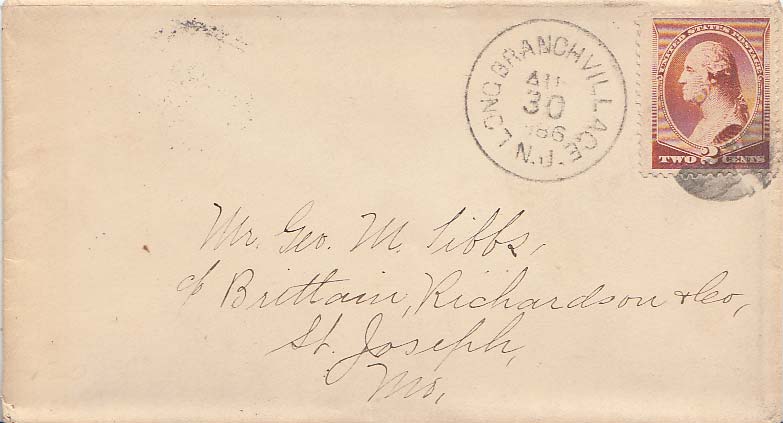 LONG BRANCH VILLAGE
AU
30
86
N.J.
UNITED STATES POSTAGE
TWO 2 CENTS
Mr. Geo. M. Tibbs,
c/ Brittain, Richardson & Co,
St. Joseph,
Mo,